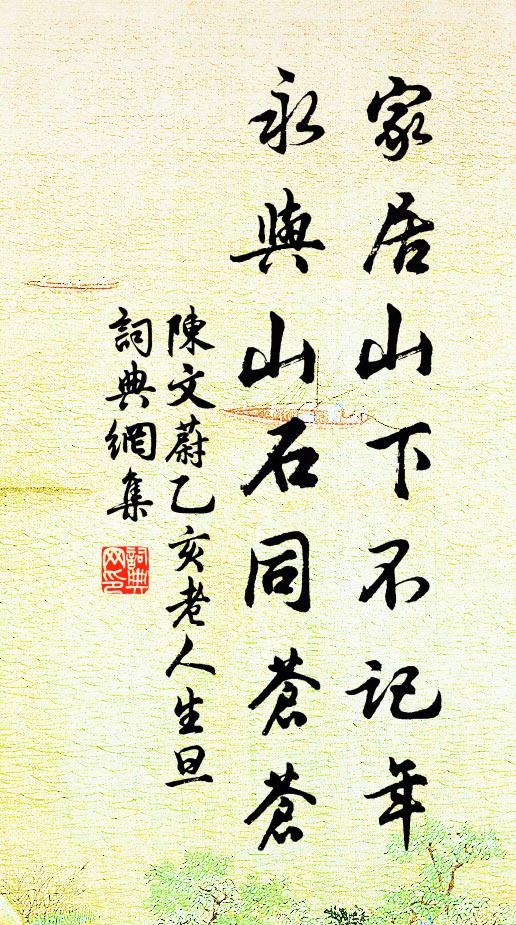 家居山下不記年
永與山石同蒼蒼
陳文蔚乙亥老人生旦
詞典網集
詞典
网印